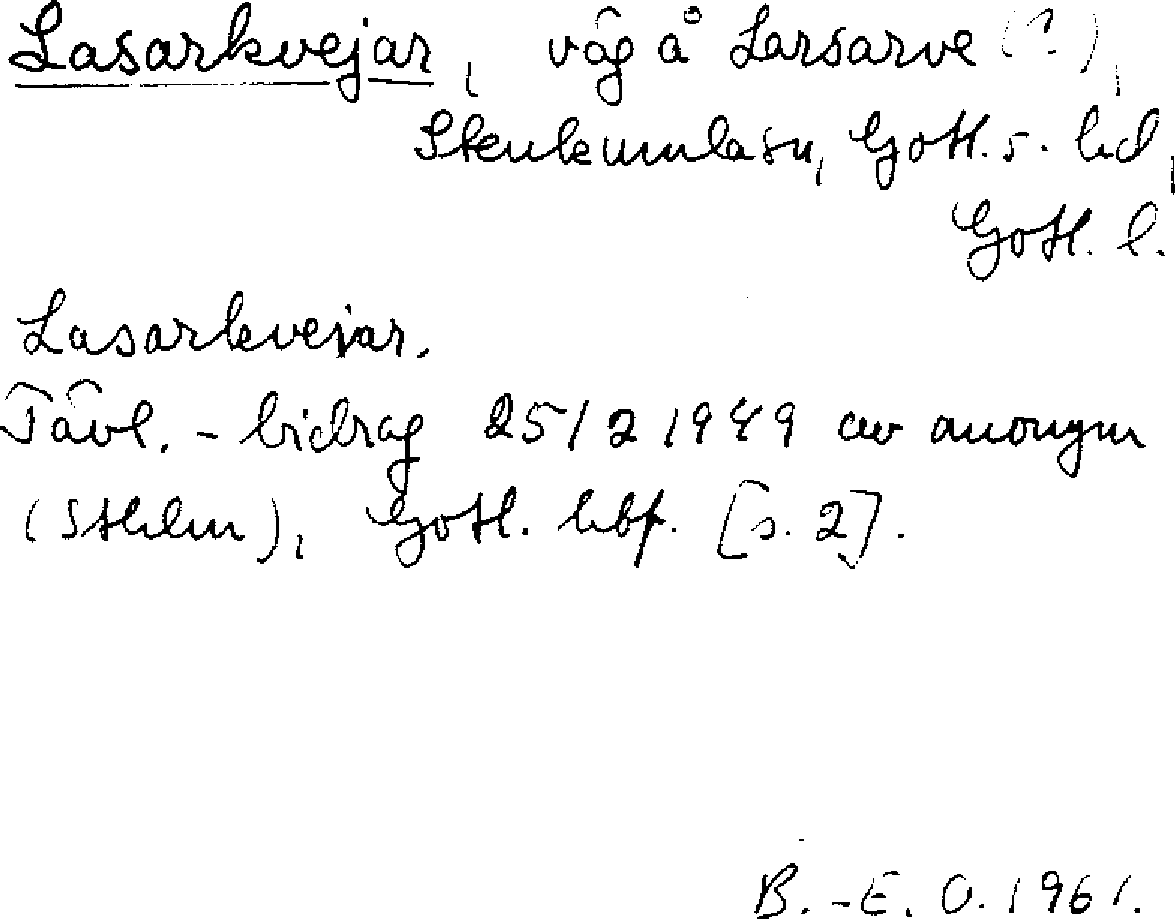 Lasarkvejar, väg å Larsarve (?),
Stenkumla sn, Gotl. s. hd,
Gotl. l.
Lasarkvejar.
Tävl.-bidrag 25/2 1949 av anonym
(Sthlm), Gotl. hbf. [s. 2].
B.-E. O. 1961.